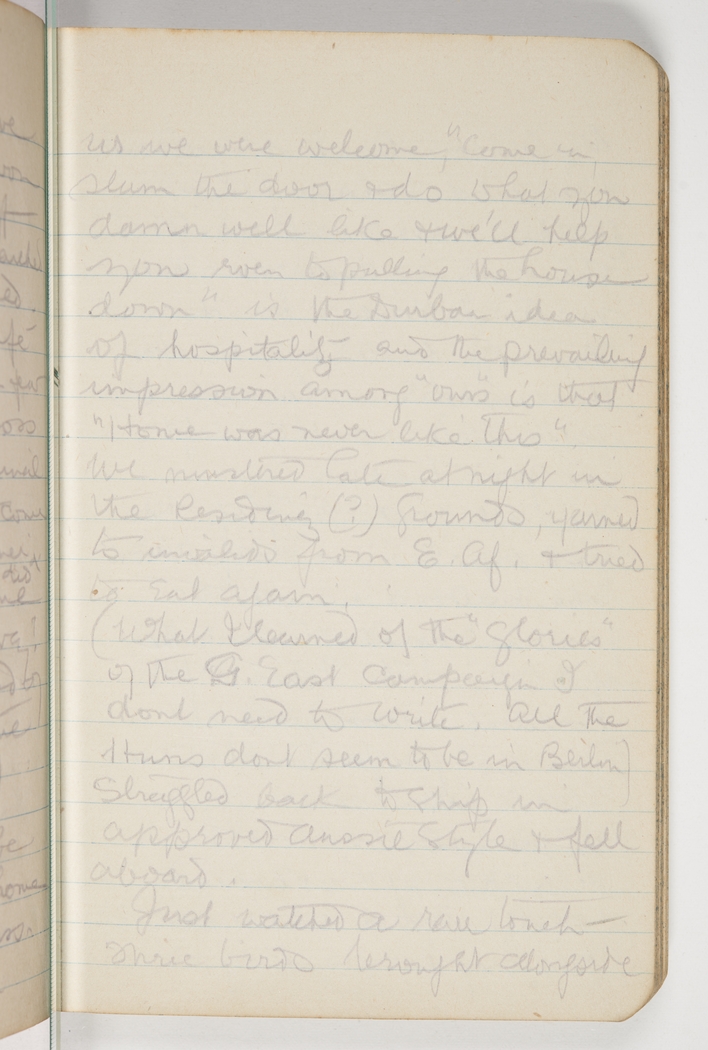 us we were welcome, "Come in,
slam the door & do what you
damn well like & we'll help
you even to pulling the house
down" is the Durban idea
of hospitality and the prevailing
impression among "ours" is that
"Home was never like this".
We mustered late at night in
the Residency (?) grounds, yarned
to invalids from E. Af. & tried
to eat again.
(What I learned of the "glories"
of the G. East Campaign I
dont need to write. All the
Huns dont seem to be in Berlin)
Straggled back to ship in
approved Aussie style & fell
aboard.
Just watched a rare touch—
birds brought alongside